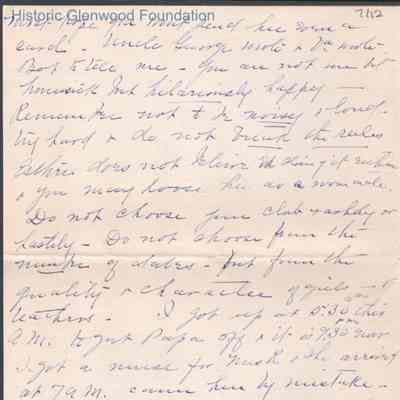 Historic Glenwood Foundation
7/12
hope you won't send her even a
card - Uncle George wrote & Pa wrote
not to tell me - You are not one bit
homesick but hilariously happy -
Remember not to be noisy & loud -
Try hard & do not break the rules
does not believe in doing it either
& you may loose her as a roommate.
Do not choose your club rashly or
hastily - Do not choose from the
number of dates - but from the
quality & character of girls -
teachers. I got up at 5:30 this
A.M. to get Papa off & it is 9:30 now
I got a nurse for & she arrived
at 7 A.M. came here by mistake -